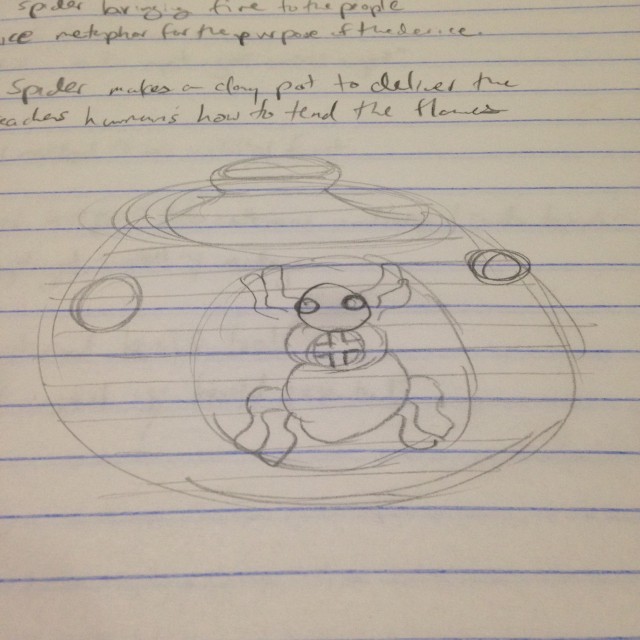 spider bringing fire to the people
ice metaphor for the purpose of the device.
Spider makes a clay pot to deliver the
eaches humans how to tend the flames